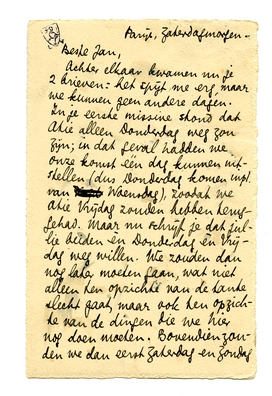 Parijs, Zaterdagmorgen.-
Beste Jan,
Achter elkaar kwamen nu je
2 brieven: het spijt me erg, maar
we kunnen geen andere dagen.
In je eerste missive stond dat
Atie alleen Donderdag weg zou
zijn; in dat geval hadden we
onze komst één dag kunnen uit-
stellen (dus Donderdag komen inpl.
van Woensdag), zoodat we
Atie Vrijdag zouden hebben terug-
gehad. Maar nu schrijf je dat jul-
lie beiden en Donderdag en Vrij-
dag weg willen. We zouden dan
nog later moeten gaan, wat niet
alleen ten opzichte van de tante
slecht gaat, maar ook ten opzich-
te van de dingen die we hier
nog doen moeten. Bovendien zou-
den we dan eerst Zaterdag en Zondag